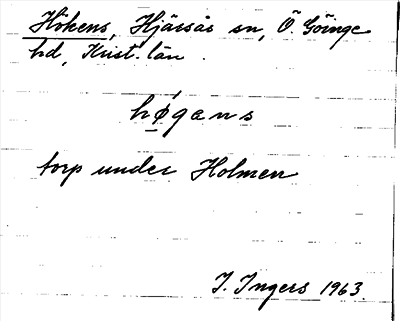 Hökens, Hjärsås sn, Ö. Göinge
hd, Krist. län.
hǿ̱gans
torp under Holmen
I. Ingers 1963.